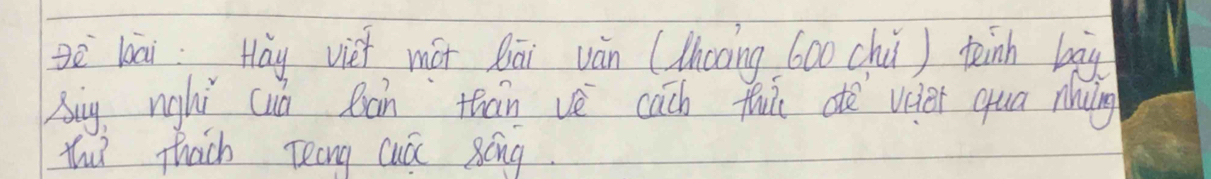 Đề bài: Hãy viết một bài văn (khoảng 600 chữ) trình bày
suy nghĩ của bản thân về cách thức để vượt qua những
thử thách trong cuộc sống.